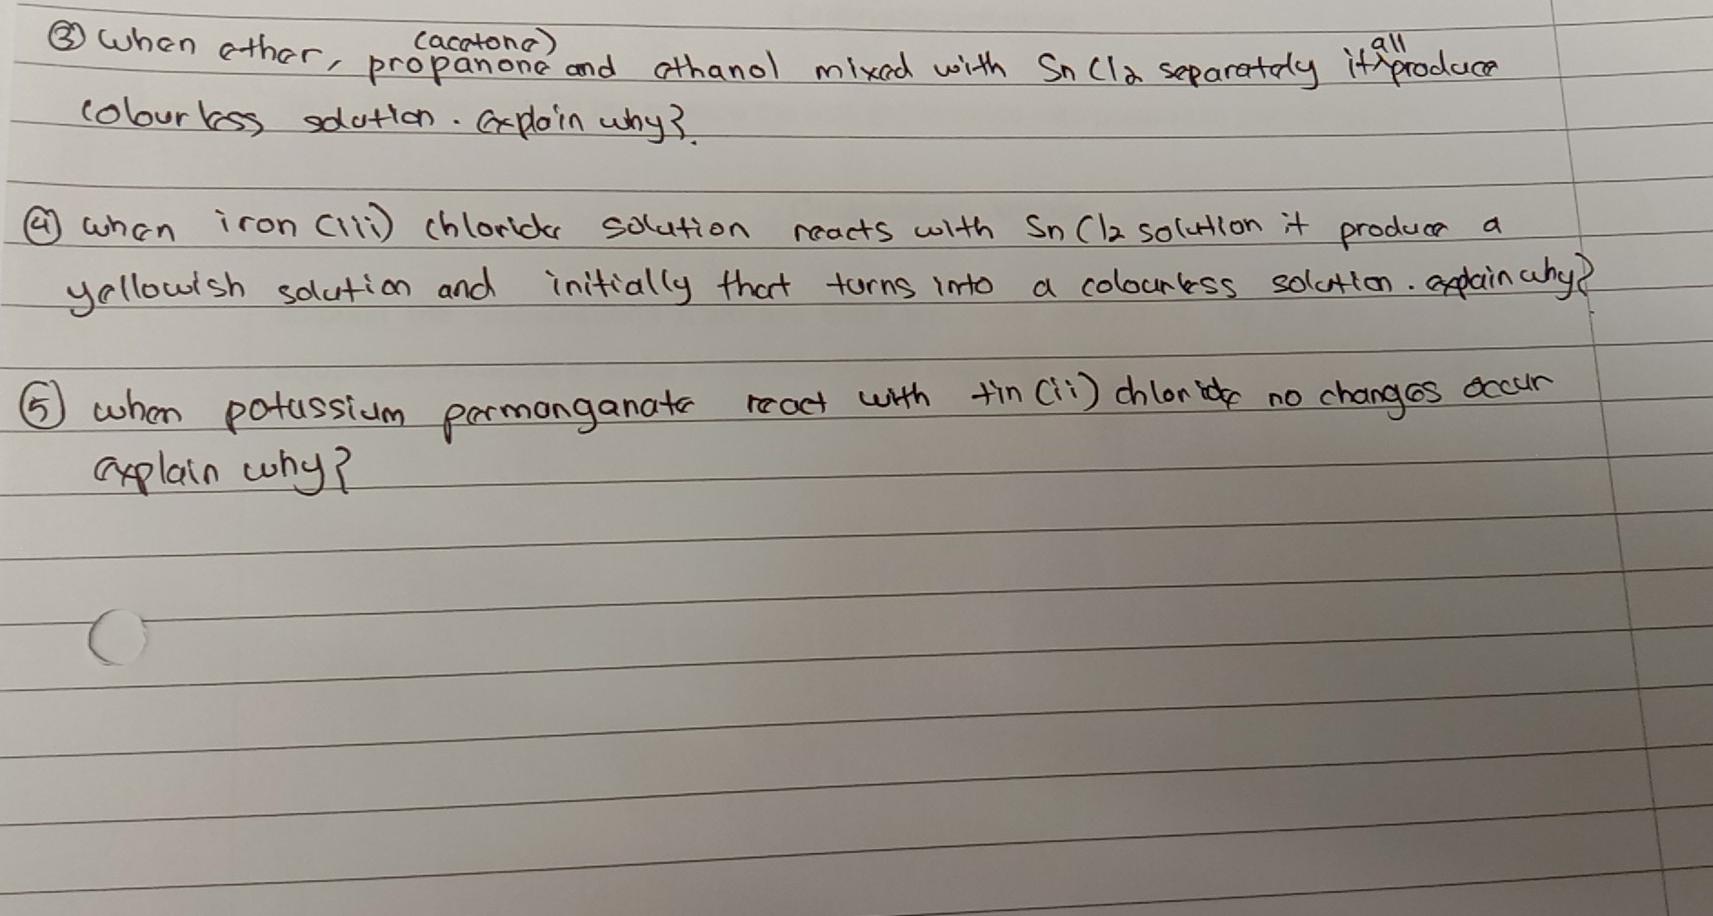 ③ when ether, propanone (acetone) and ethanol mixed with SnCl2 separately it all produce
colourless solution. explain why?
④ when iron (iii) chloride solution reacts with SnCl2 solution it produce a
yellowish solution and initially that turns into a colourless solution. explain why?
⑤ when potassium permanganate react with tin (ii) chloride no changes occur
explain why?